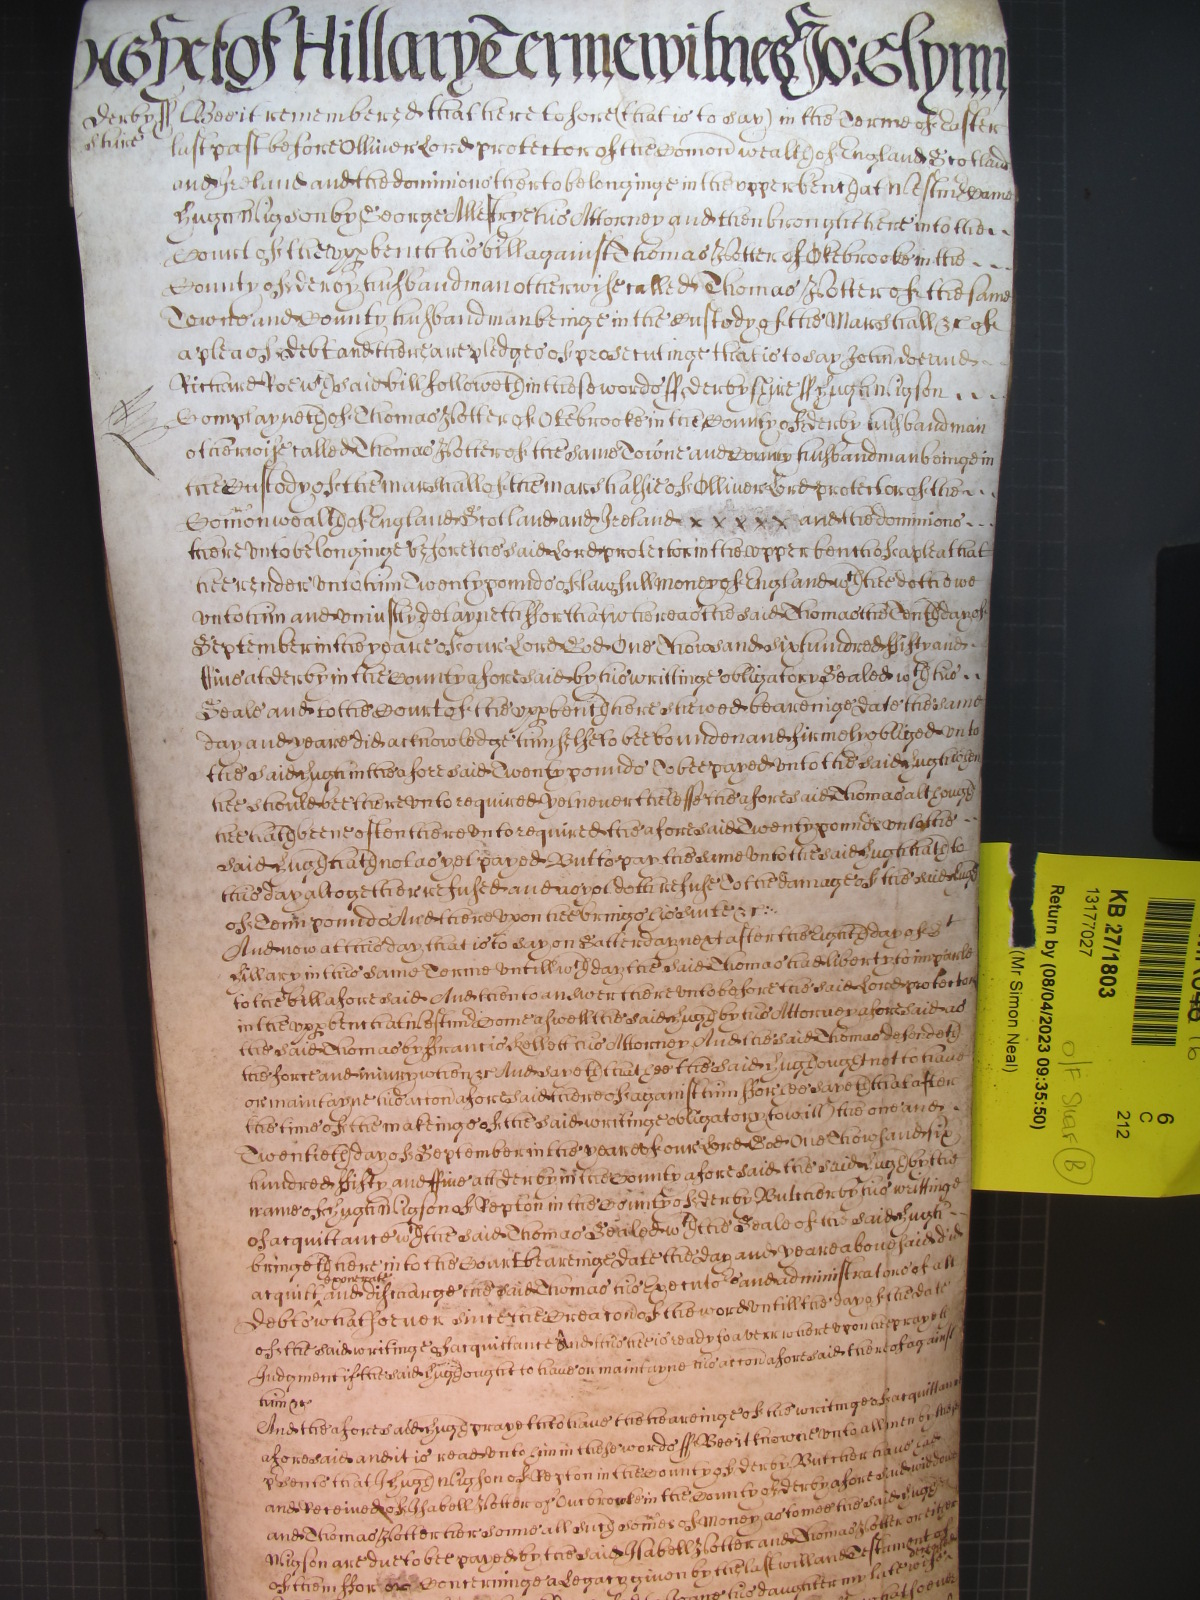 yet of Hillary Terme witnes Jo: Glynn
Derby shire ss Bee it remembered that heretofore (that is to say) in the Terme of Easter
last past before Olliver Lord protector of the Comon wealth of England Scotland
and Ireland and the dominions therto belonginge in the upper bench at Westmr Came
Hugh Migson by George Allestrye his Attorney and then brought here into the
Court of the upp bench his bill against Thomas Potter of Okebrooke in the
County of derby husbandman otherwise called Thomas Potter of the same
Towne and County husbandman beinge in the Custody of the Marshall &c of
a plea of debt and there are pledges of prosecutinge that is to say John doe and
Richard Roe wch said bill followeth in these words ss derbyshire ss Hugh Migson
Complayneth of Thomas Potter of Okebrooke in the County of derby husbandman
otherwise called Thomas Potter of the same Towne and County husbandman beinge in
the Custody of the marshall of the marshalsie of Olliver Lord protector of the
Comonwealth of England Scotland and Ireland x x x x x and the dominions
there unto belonginge before the said Lord protector in the upper bench of a plea that
hee render unto him Twenty pounds of lawfull money of England wch hee doth owe
unto him and uniustly detayneth For that whereas the said Thomas the Tenth day of
September in the yeare of our Lord God One Thowsand six hundred fifty and
ffive at derby in the County aforesaid by his writtinge obligatory Sealed with his
Seale and to the Court of the upp bench here shewed bearinge date the same
day and yeare did acknowledge himselfe to bee bounden and firmely obliged unto
the said Hugh in the aforesaid Twenty pounds To bee payed unto the said Hugh when
hee should bee thereunto required yet neverthelesse the aforesaid Thomas although
hee hath beene often thereunto required the aforesaid Twenty pounds unto the
said Hugh hath not as yet payed But to pay the same unto the said Hugh hath to
this day altogether refused and as yet doth refuse To the damage of the said Hugh
of Tenn pounds And thereupon hee brings his suite &c
And now at this day that is to say on Satterday next after the Eight day of St
Hillary in this same Terme untill wch day the said Thomas had liberty to imparle
to the bill aforesaid And then to answer thereunto before the said Lord protector
in the upp bench at Westmr Come aswell the said Hugh by his Attorney aforesaid as
the said Thomas by Francis Kellett his Attorney And the said Thomas defendeth
the force and iniury when &c And sayeth that hee the said Hugh ought not to have
or maintayne his accon aforesaid thereof against him For hee sayeth that after
the time of the makeinge of the said writinge obligatory to witt the one and
Twentieth day of September in the yeare of our Lord God One Thowsand six
hundred fifty and ffive att derby in the County aforesaid the said Hugh by the
name of Hugh Migson of Repton in the County of derby Butcher by his writtinge
of acquittance wch the said Thomas Sealed wth the Seale of the said Hugh
bringeth here into the Court bearinge date the day and yeare abovesaid did
acquitt exonerate and discharge the said Thomas his Executors and administrators of all
debts whatsoever since the Creacon of the world untill the day of the date
of the said writinge of acquittance And this hee is ready to averr whereupon hee prayeth
Judgment if the said Hugh ought to have or maintayne his accon aforesaid thereof against
him &c
And the aforesaid Hugh prayeth to have the heareinge of the writinge of acquittance
aforesaid and it is read unto him in these words ss Bee it knowne unto all men by these
psents that I Hugh Migson of Repton in the County of derby Butcher have had
and Received of Isabell Potter of Ockbrooke in the County of derby aforesaid widdowe
and Thomas Potter her sonne all such somes of Money as to mee the said Hugh
Migson are due to bee payed by the said Isabell Potter and Thomas Potter or either
of them For or Concerninge a Legacy given by the last will and Testament of
his daughter my late wife
KB 27/1803
13177027
Return by (08/04/2023 09:35:50)
(Mr Simon Neal)
6
C
212
O/F Shelf B